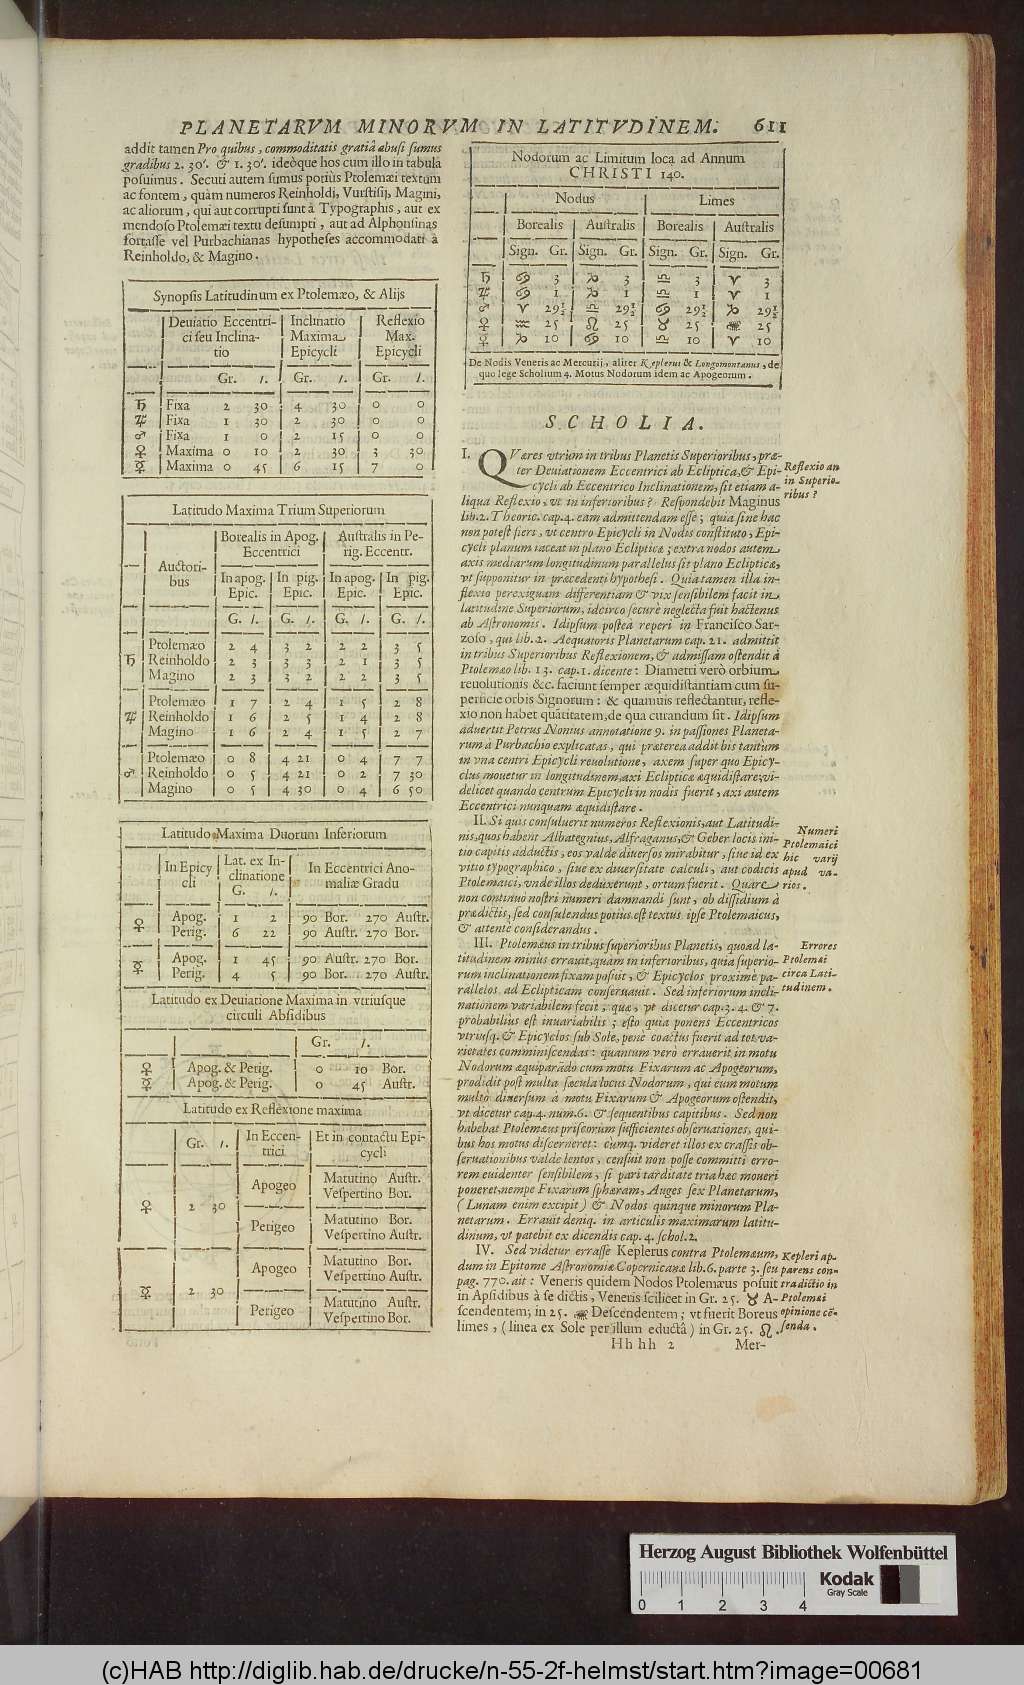 PLANETARVM MINORVM IN LATITVDINEM. 611
addit tamen Pro quibus, commoditatis gratiâ abusi sumus
gradibus 2. 30'. & 1. 30'. ideòque hos cum illo in tabula
posuimus. Secuti autem sumus potiùs Ptolemæi textum
ac fontem, quàm numeros Reinholdi, Vurstisij, Magini,
ac aliorum, qui aut corrupti sunt à Typographis, aut ex
mendoso Ptolemæi textu desumpti, aut ad Alphonsinas
fortasse vel Purbachianas hypotheses accommodati à
Reinholdo, & Magino.
Synopsis Latitudinum ex Ptolemæo, & Alijs
Deuiatio Eccentri- Inclinatio Reflexio
ci seu Inclina- Maxima Max.
tio Epicycli Epicycli
Gr. /. Gr. /. Gr. /.
♄ Fixa 2 30 4 30 0 0
♃ Fixa 1 30 2 30 0 0
♂ Fixa 1 0 2 15 0 0
♀ Maxima 0 10 2 30 3 30
☿ Maxima 0 45 6 15 7 0
Latitudo Maxima Trium Superiorum
Auctori-
bus
Borealis in Apog. Australis in Pe-
Eccentrici rig. Eccentr.
In apog. In pig. In apog. In pig.
Epic. Epic. Epic. Epic.
G. /. G. /. G. /. G. /.
Ptolemæo 2 4 3 2 2 2 3 5
♄ Reinholdo 2 3 3 3 2 1 3 5
Magino 2 3 3 2 2 2 3 5
Ptolemæo 1 7 2 4 1 5 2 8
♃ Reinholdo 1 6 2 5 1 4 2 8
Magino 1 6 2 4 1 5 2 7
Ptolemæo 0 8 4 21 0 4 7 7
♂ Reinholdo 0 5 4 21 0 2 7 30
Magino 0 5 4 30 0 4 6 50
Latitudo Maxima Duorum Inferiorum
In Epicy Lat. ex In- In Eccentrici Ano-
cli clinatione maliæ Gradu
G. /.
♀ Apog. 1 2 90 Bor. 270 Austr.
Perig. 6 22 90 Austr. 270 Bor.
☿ Apog. 1 45 90 Austr. 270 Bor.
Perig. 4 5 90 Bor. 270 Austr.
Latitudo ex Deuiatione Maxima in vtriusque
circuli Absidibus
Gr. /.
♀ Apog. & Perig. 0 10 Bor.
☿ Apog. & Perig. 0 45 Austr.
Latitudo ex Reflexione maxima
Gr. /. In Eccen- Et in contactu Epi-
trici cycli
♀ 2 30
Apogeo Matutino Austr.
Vespertino Bor.
Perigeo Matutino Bor.
Vespertino Austr.
☿ 2 30
Apogeo Matutino Bor.
Vespertino Austr.
Perigeo Matutino Austr.
Vespertino Bor.
Nodorum ac Limitum loca ad Annum
CHRISTI 140.
Nodus Limes
Borealis Australis Borealis Australis
Sign. Gr. Sign. Gr. Sign. Gr. Sign. Gr.
♄ ♋ 3 ♑ 3 ♎ 3 ♈ 3
♃ ♋ 1 ♑ 1 ♎ 1 ♈ 1
♂ ♈ 29½ ♎ 29½ ♋ 29½ ♑ 29½
♀ ♒ 25 ♌ 25 ♉ 25 ♏ 25
☿ ♑ 10 ♋ 10 ♎ 10 ♈ 10
De Nodis Veneris ac Mercurij, aliter Keplerus & Longomontanus, de
quo lege Scholium 4. Motus Nodorum idem ac Apogeorum.
SCHOLIA.
I. QVæres vtrùm in tribus Planetis Superioribus, præ-
ter Deuiationem Eccentrici ab Ecliptica, & Epi-
cycli ab Eccentrico Inclinationem, sit etiam a-
liqua Reflexio, vt in inferioribus? Respondebit Maginus
lib. 2. Theoric. cap. 4. eam admittendam esse; quia sine hac
non potest fieri, vt centro Epicycli in Nodis constituto, Epi-
cycli planum iaceat in plano Eclipticæ; extra nodos autem
axis mediarum longitudinum parallelus sit plano Eclipticæ,
vt supponitur in præcedenti hypothesi. Quia tamen illa in-
flexio perexiguam differentiam & vix sensibilem facit in
latitudine Superiorum, idcirco securè neglecta fuit hactenus
ab Astronomis. Idipsum posteà reperi in Francisco Sar-
zoso, qui lib. 2. Aequatoris Planetarum cap. 21. admittit
in tribus Superioribus Reflexionem, & admissam ostendit à
Ptolemæo lib. 13. cap. 1. dicente: Diametri verò orbium
reuolutionis &c. faciunt semper æquidistantiam cum su-
perficie orbis Signorum: & quamuis reflectantur, refle-
xio non habet quãtitatem, de qua curandum sit. Idipsum
aduertit Petrus Nonius annotatione 9. in passiones Planeta-
rum à Purbachio explicatas, qui præterea addit bis tantùm
in vna centri Epicycli reuolutione, axem super quo Epicy-
clus mouetur in longitudinem, axi Eclipticæ æquidistare; vi-
delicet quando centrum Epicycli in nodis fuerit, axi autem
Eccentrici nunquam æquidistare.
II. Si quis consuluerit numeros Reflexionis, aut Latitudi-
nis, quos habent Albategnius, Alfraganus, & Geber locis ini-
tio capitis adductis, eos valde diuersos mirabitur, siue id ex
vitio typographico, siue ex diuersitate calculi, aut codicis
Ptolemaici, vnde illos deduxerunt, ortum fuerit. Quare
non continuo nostri numeri damnandi sunt, ob dissidium à
prædictis, sed consulendus potius est textus ipse Ptolemaicus,
& attente considerandus.
III. Ptolemæus in tribus superioribus Planetis, quoad la-
titudinem minùs errauit, quàm in inferioribus, quia superio-
rum inclinationem fixam posuit, & Epicyclos proxime pa-
rallelos ad Eclipticam conseruauit. Sed inferiorum incli-
nationem variabilem fecit, quæ, vt dicetur cap. 3. 4. & 7.
probabilius est inuariabilis; esto quia ponens Eccentricos
vtriusq. & Epicyclos sub Sole, penè coactus fuerit ad tot va-
rietates comminiscendas: quantum vero errauerit in motu
Nodorum æquiparãdo cum motu Fixarum ac Apogeorum,
prodidit post multa sæcula locus Nodorum, qui eum motum
multò diuersum à motu Fixarum & Apogeorum ostendit,
vt dicetur cap. 4. num. 6. & sequentibus capitibus. Sed non
habebat Ptolemæus priscorum sufficientes obseruationes, qui-
bus hos motus discerneret: cumq. videret illos ex crassis ob-
seruationibus valde lentos, censuit non posse committi erro-
rem euidenter sensibilem, si pari tarditate tria hæc moueri
poneret, nempe Fixarum sphæram, Auges sex Planetarum,
(Lunam enim excipit) & Nodos quinque minorum Pla-
netarum. Errauit deniq. in articulis maximarum latitu-
dinum, vt patebit ex dicendis cap. 4. schol. 2.
IV. Sed videtur errasse Keplerus contra Ptolemæum,
dum in Epitome Astronomiæ Copernicanæ lib. 6. parte 3. seu
pag. 770. ait: Veneris quidem Nodos Ptolemæus posuit
in Apsidibus à se dictis, Veneris scilicet in Gr. 25. ♉ A-
scendentem; in 25. ♏ Descendentem; vt fuerit Boreus
limes, (linea ex Sole per illum eductâ) in Gr. 25. ♌.
Reflexio an
in Superio-
ribus?
Numeri
Ptolemaici
hic varij
apud va-
rios.
Errores
Ptolemæi
circa Lati-
tudinem.
Kepleri ap-
parens con-
tradictio in
Ptolemæi
opinione cẽ-
senda.
Hhhh 2 Mer-
Herzog August Bibliothek Wolfenbüttel
Kodak
Gray Scale
0 1 2 3 4
(c)HAB http://diglib.hab.de/drucke/n-55-2f-helmst/start.htm?image=00681